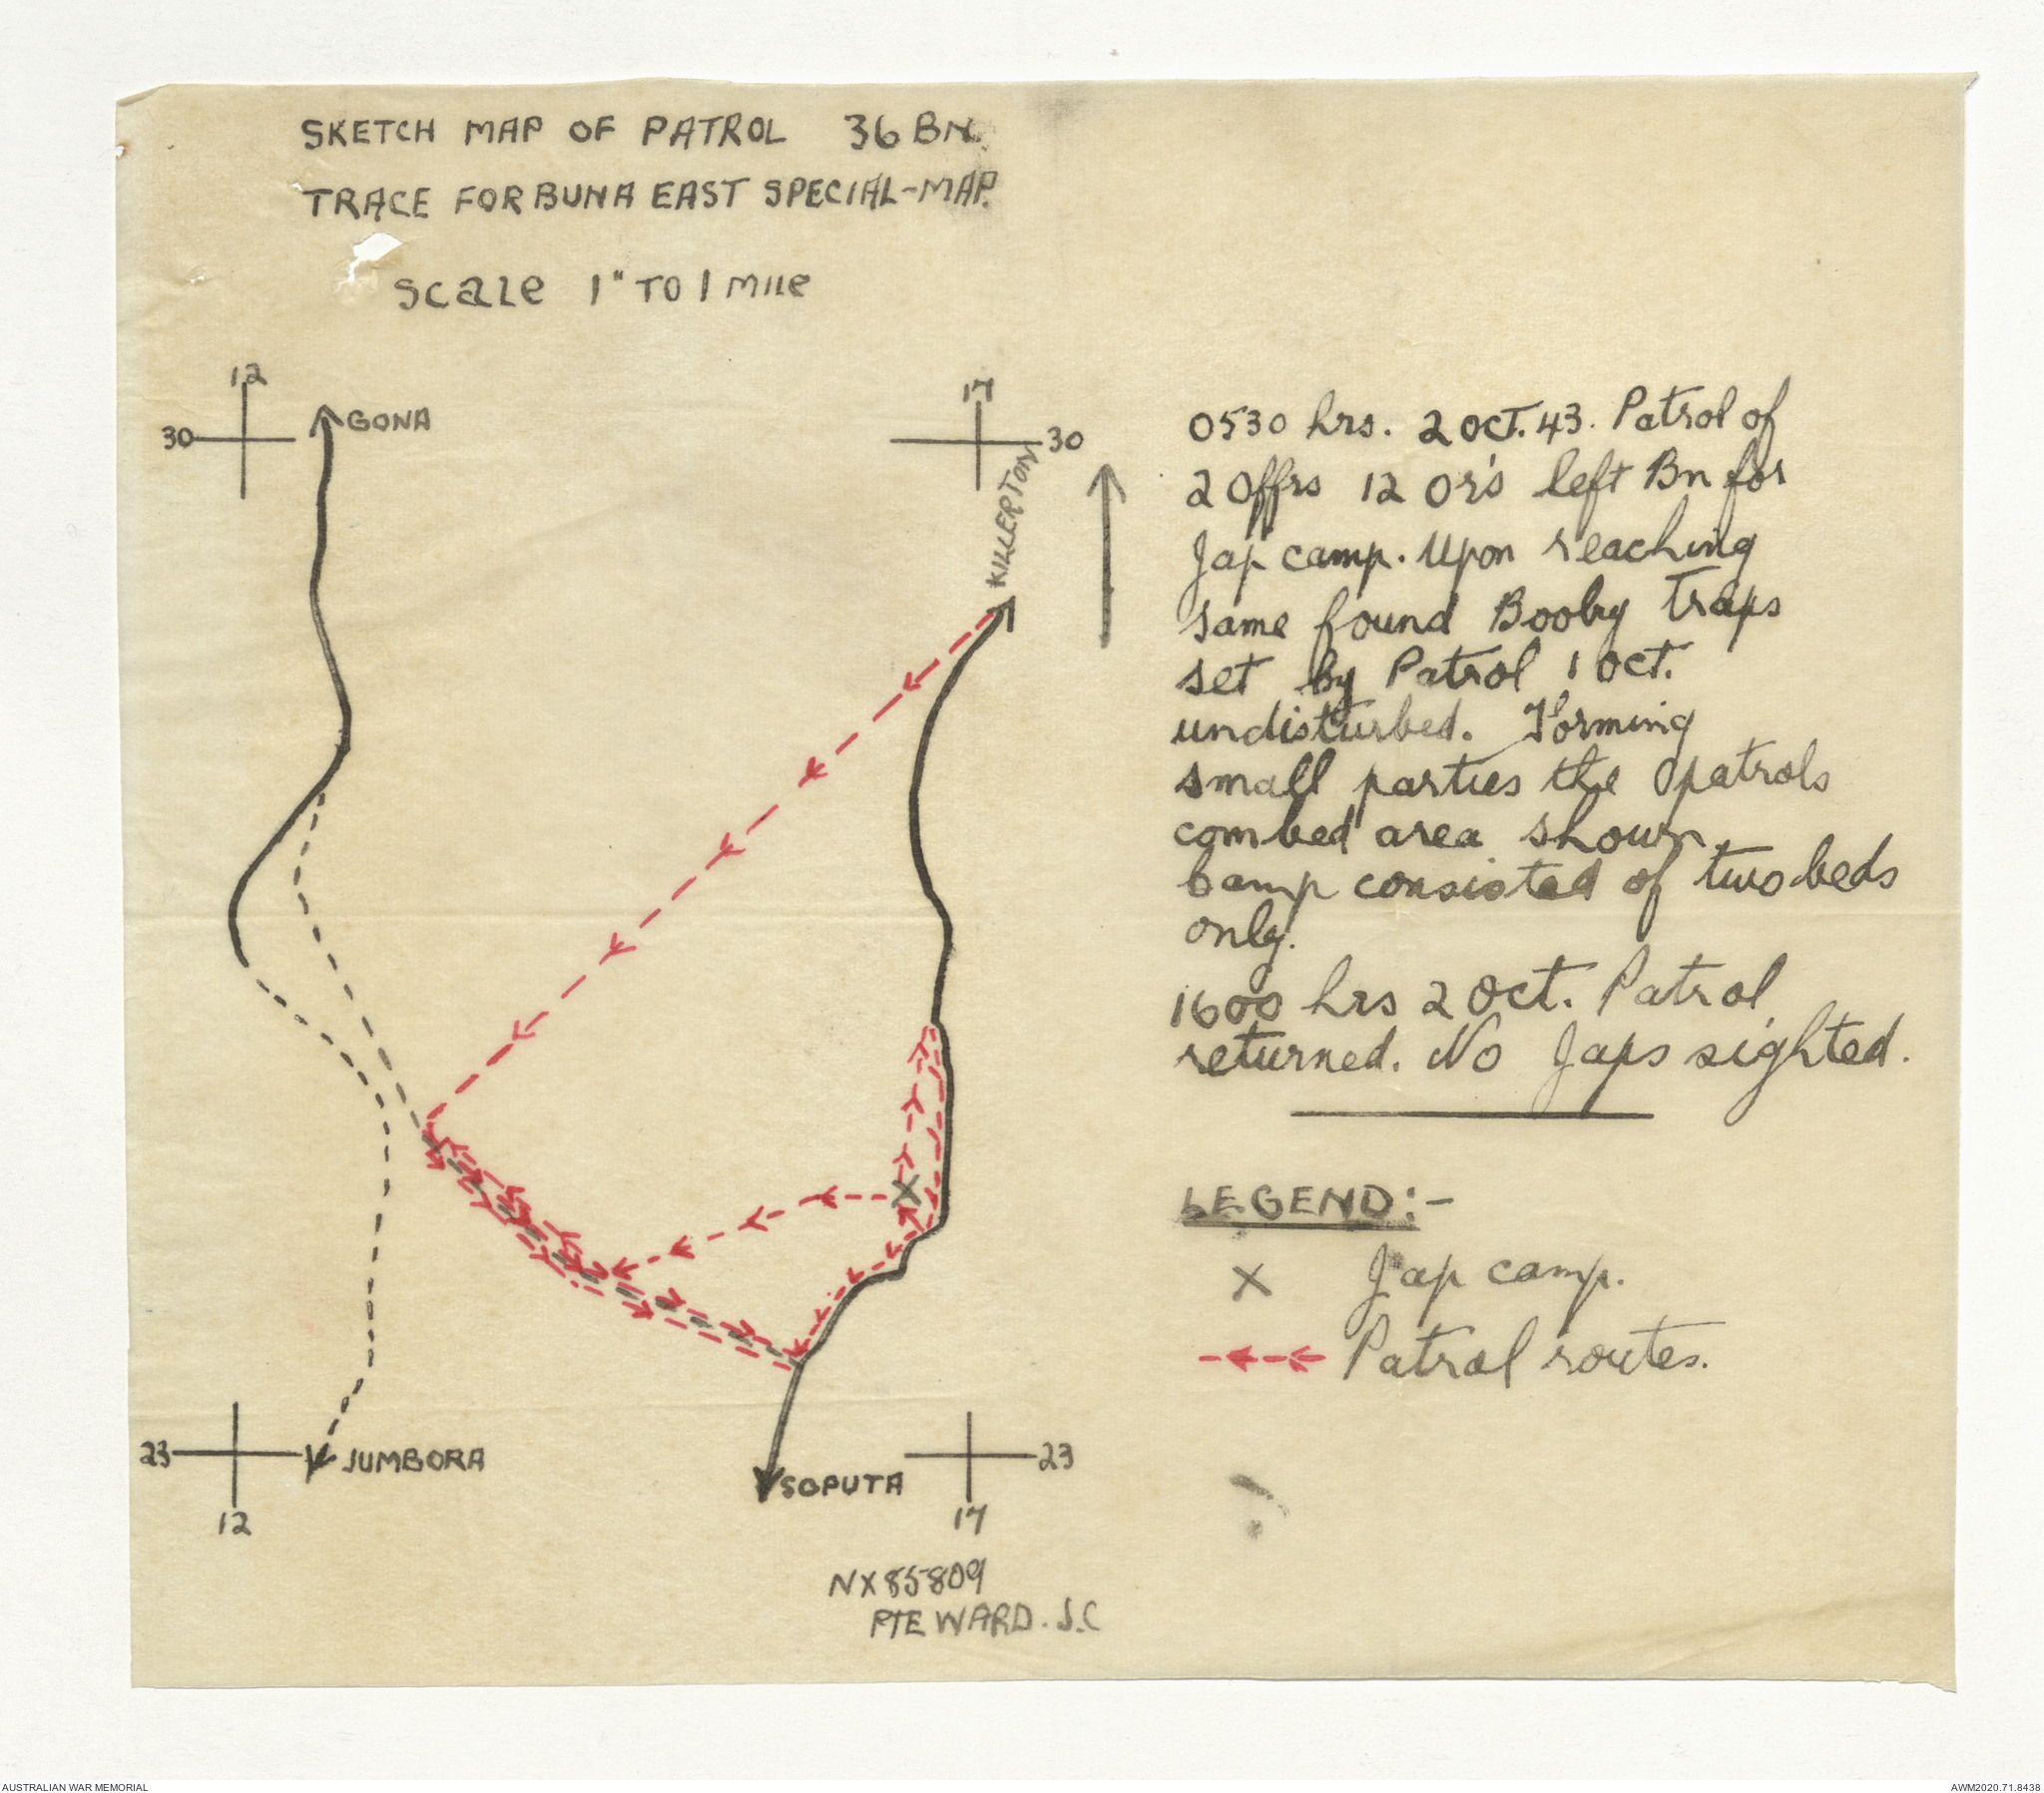 SKETCH MAP OF PATROL 36 BN.
TRACE FOR BUNA EAST SPECIAL-MAP.
Scale 1" TO 1 Mile
12
17
30
GONA
30
KILLERTON
0530 hrs. 2 OCT. 43. Patrol of
2 Offrs 12 Or's left Bn for
Jap camp. Upon reaching
same found Booby Traps
set by Patrol 1 Oct.
undisturbed. Forming
small parties the patrols
combed area shown.
Camp consisted of two beds
only.
1600 hrs 2 Oct. Patrol
returned. No Japs sighted.
LEGEND:-
X Jap camp.
Patrol routes.
23
JUMBORA
SOPUTA
23
12
17
NX85809
PTE WARD. J.C
AUSTRALIAN WAR MEMORIAL
AWM2020.71.8438